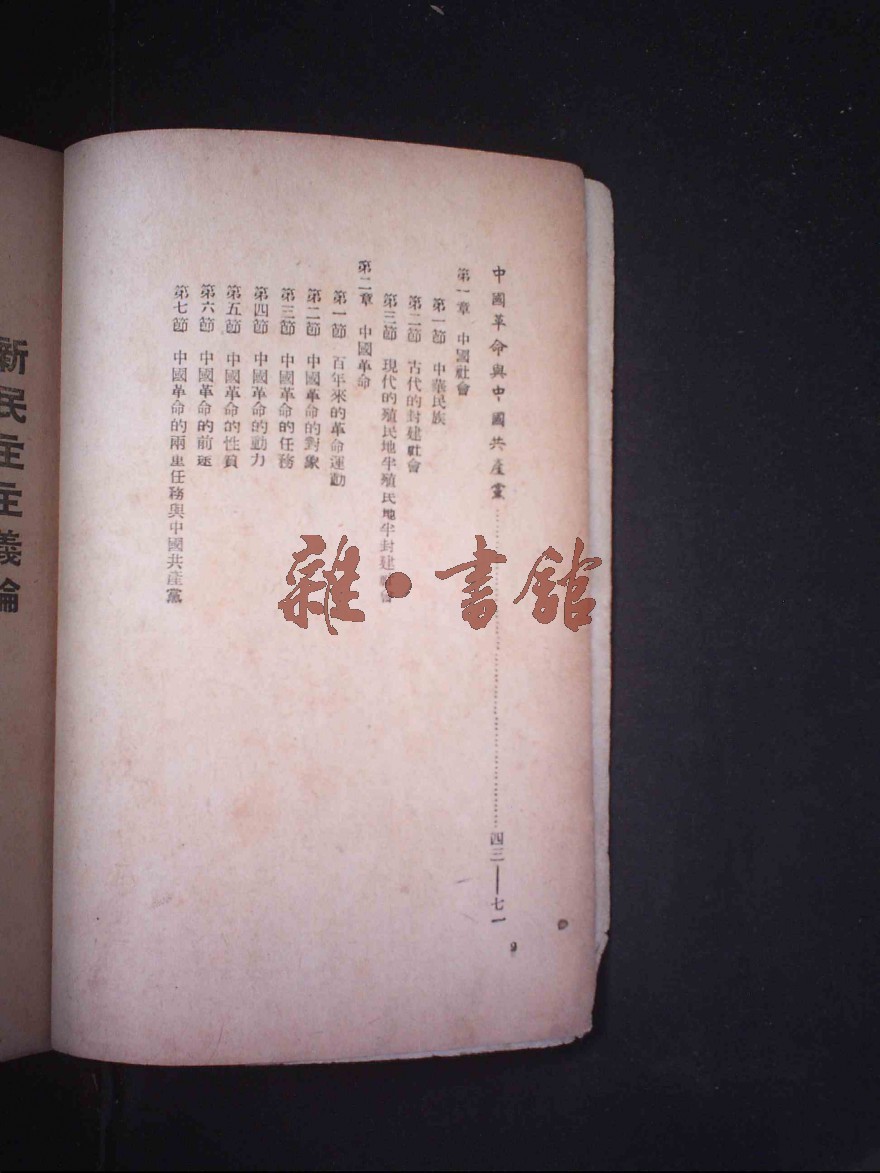 中國革命與中國共產黨…………四三——七一
第一章 中國社會
第一節 中華民族
第二節 古代的封建社會
第三節 現代的殖民地半殖民地半封建社會
第二章 中國革命
第一節 百年來的革命運動
第二節 中國革命的對象
第三節 中國革命的任務
第四節 中國革命的動力
第五節 中國革命的性質
第六節 中國革命的前途
第七節 中國革命的兩重任務與中國共產黨
2
新民主主義論
雜·書館